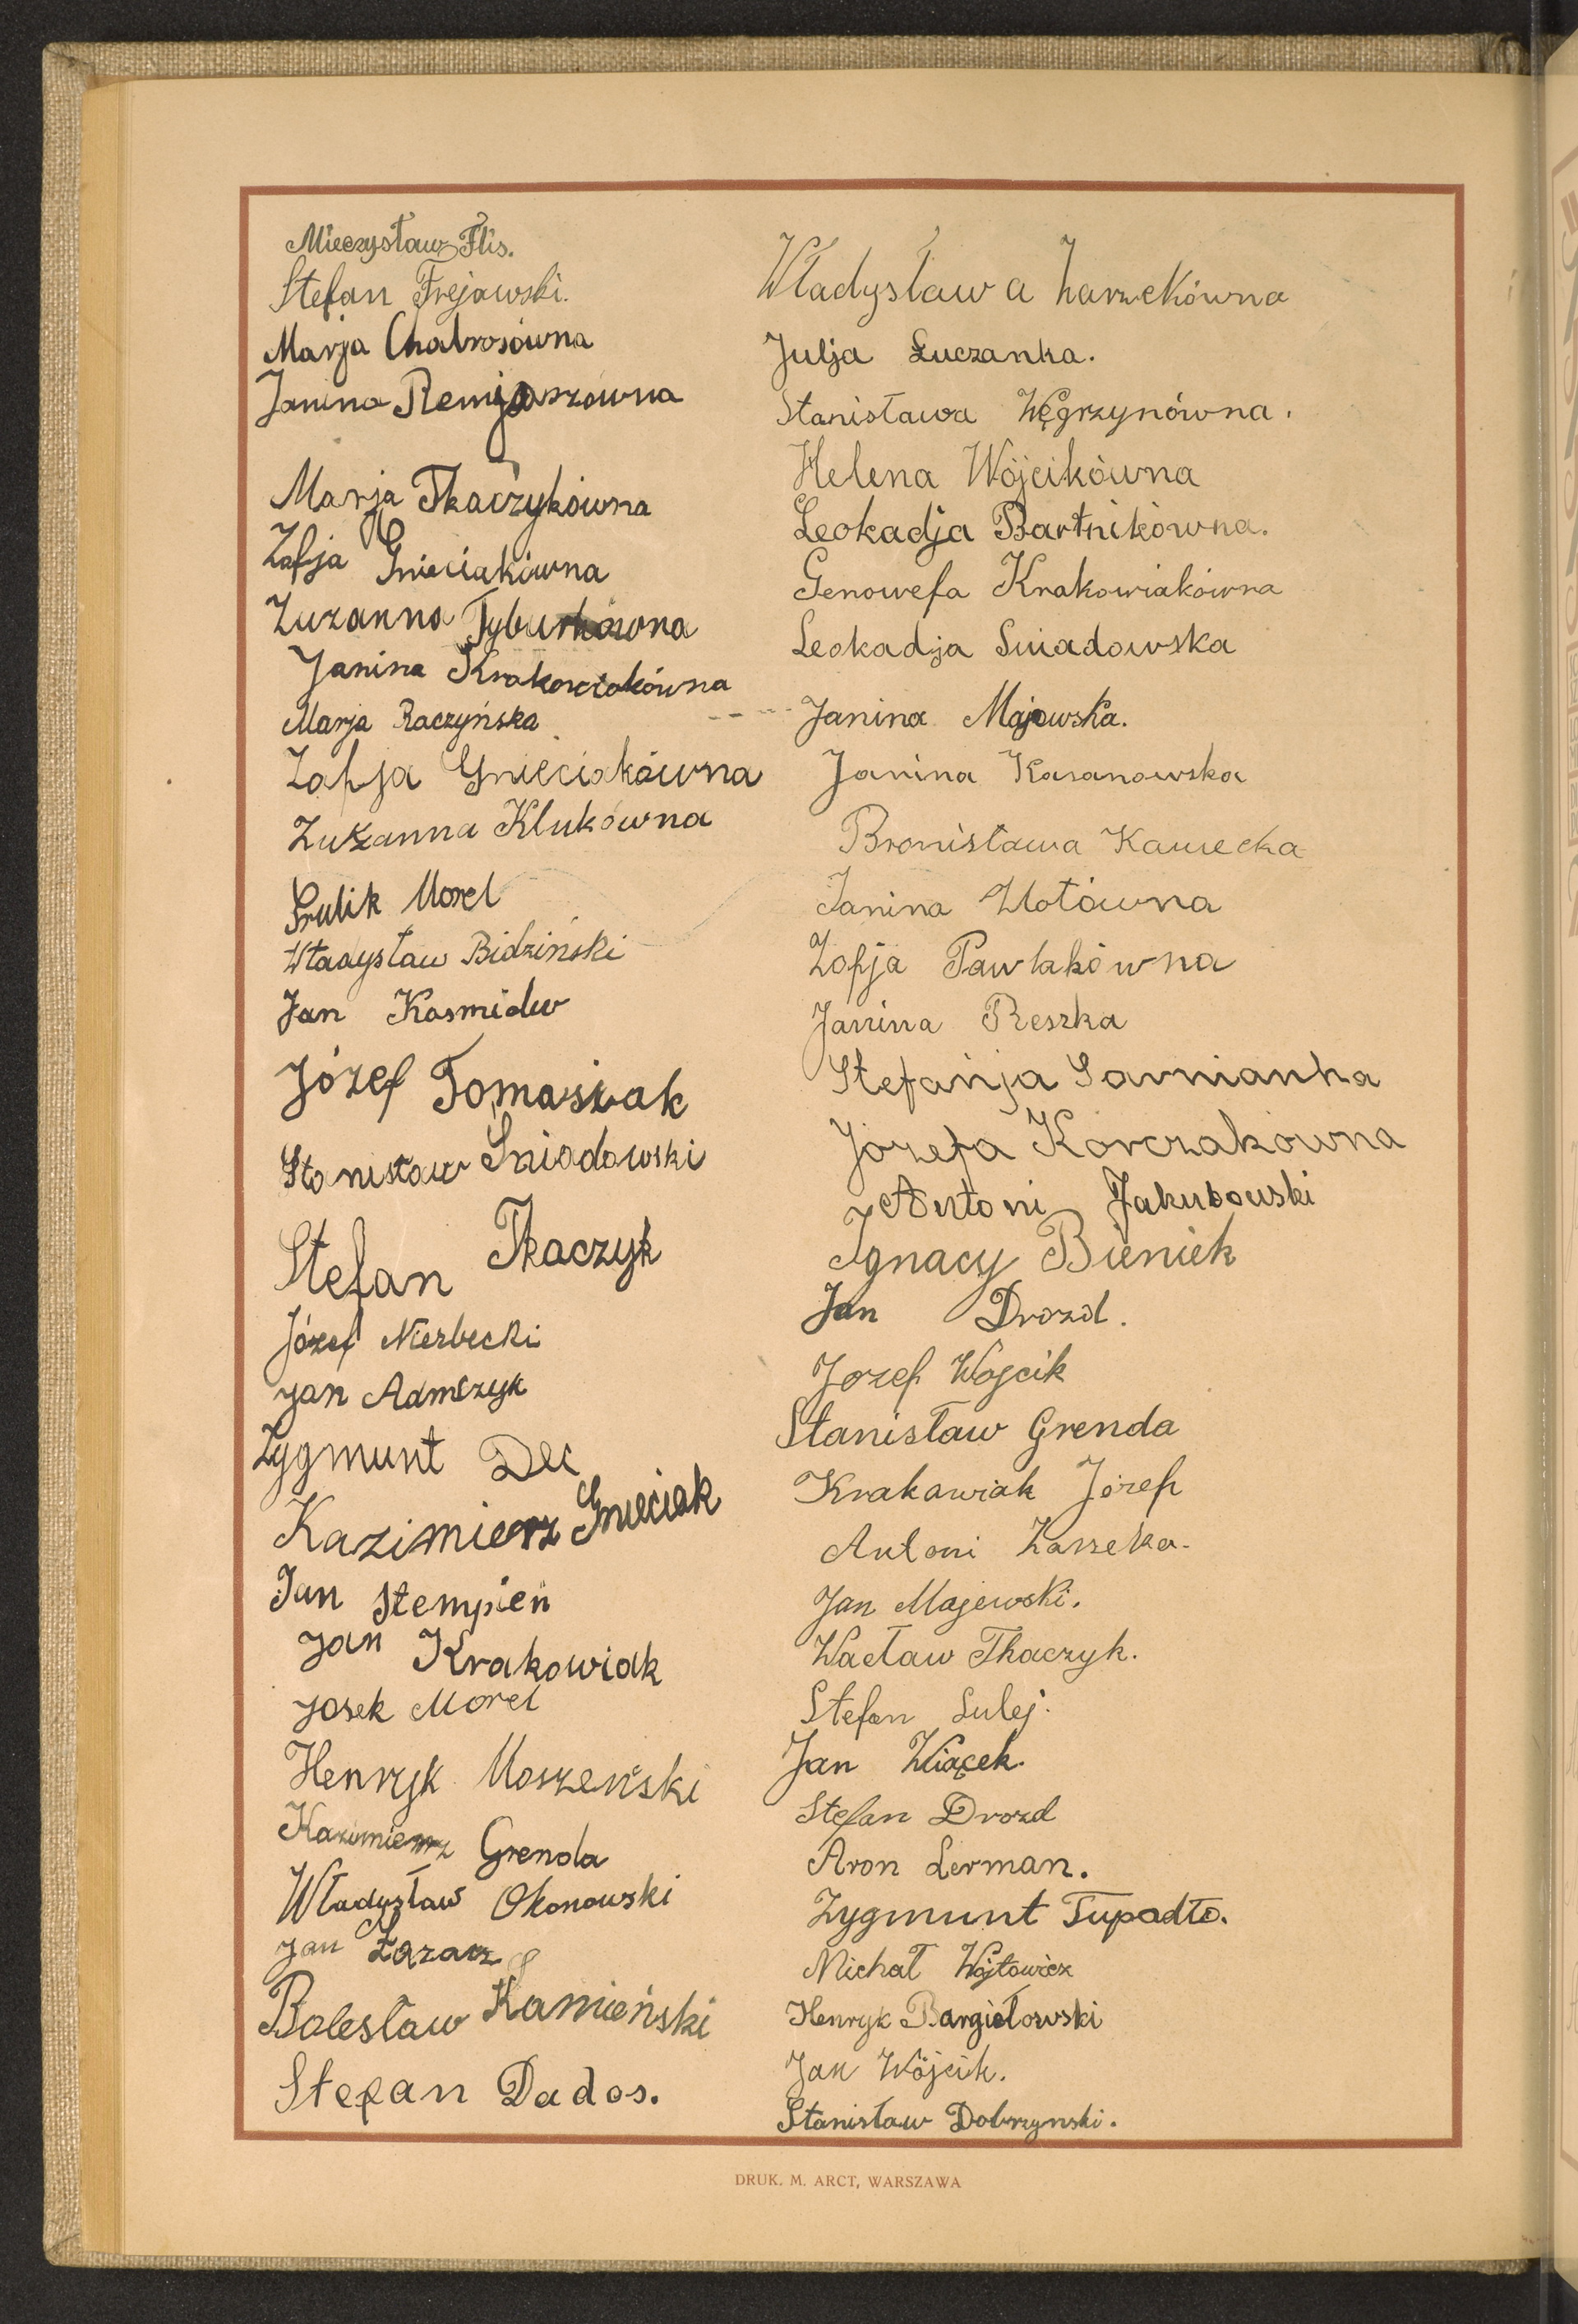 Mieczysław Flis.
Stefan Frejowski.
Marja Chabrosówna
Janina Remjaszówna
Marja Tkaczykówna
Zofja Gnieciakówna
Zuzanna Tyburkówna
Janina Krakowiakówna
Marja Raczyńska
Zofja Gnieciakówna
Zuzanna Klukówna
Srulik Morel
Władysław Bidziński
Jan Kosmider
Józef Tomasiak
Stanisław Śniadowski
Stefan Tkaczyk
Józef Nierbecki
Jan Admczyk
Zygmunt Dec
Kazimierz Gnieciak
Jan Stempień
Jan Krakowiak
Josek Morel
Henryk Moszeński
Kazimierz Grenda
Władysław Okonowski
Jan Łazarz
Bolesław Kamieński
Stefan Dados.
Władysława Zarzekówna
Julja Łuczanka.
Stanisława Węgrzynówna.
Helena Wójcikówna
Leokadja Bartnikówna.
Genowefa Krakowiakówna
Leokadja Sniadowska
Janina Majewska.
Janina Kasanowska
Bronisława Kawecka
Janina Złotówna
Zofja Pawlakówna
Janina Reszka
Stefanja Sarnianka
Józefa Korczakówna
Antoni Jakubowski
Ignacy Bieniek
Jan Drozd.
Jozef Wojcik
Stanisław Grenda
Krakowiak Józef
Antoni Zarzeka.
Jan Majewski.
Wacław Tkaczyk.
Stefan Sulej.
Jan Wiącek.
Stefan Drozd
Aron Lerman.
Zygmunt Tupadło.
Michał Wójtowicz
Henryk Bargiełowski
Jan Wójcik.
Stanisław Dobrzynski.
DRUK. M. ARCT, WARSZAWA